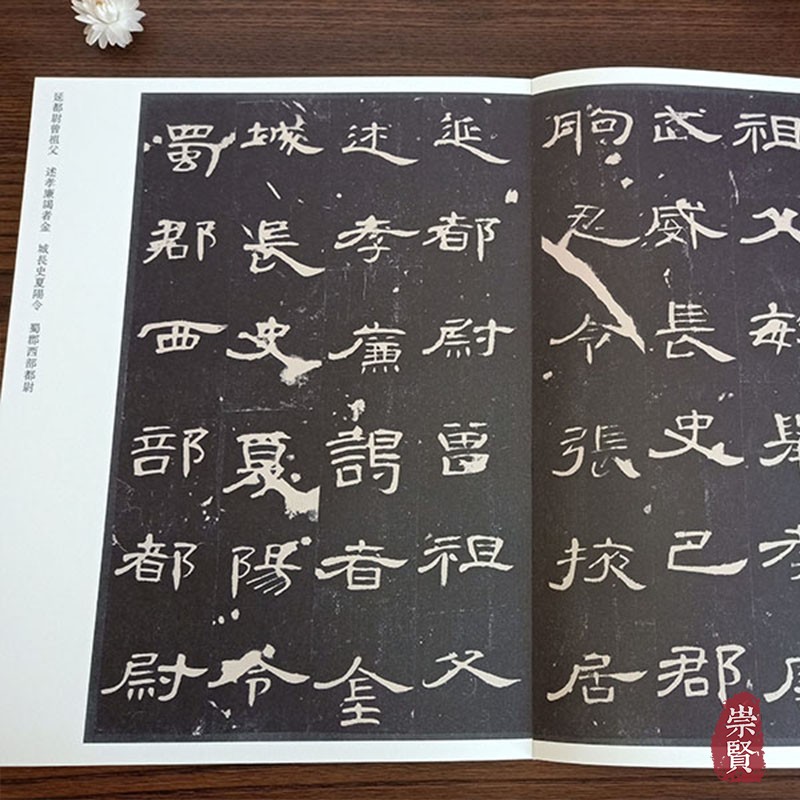 祖父敏舉孝廉
武威長史巴郡
朐忍令張掖居
延都尉曾祖父
述孝廉謁者金
城長史夏陽令
蜀郡西部都尉
延都尉曾祖父 述孝廉謁者金 城長史夏陽令 蜀郡西部都尉
崇賢